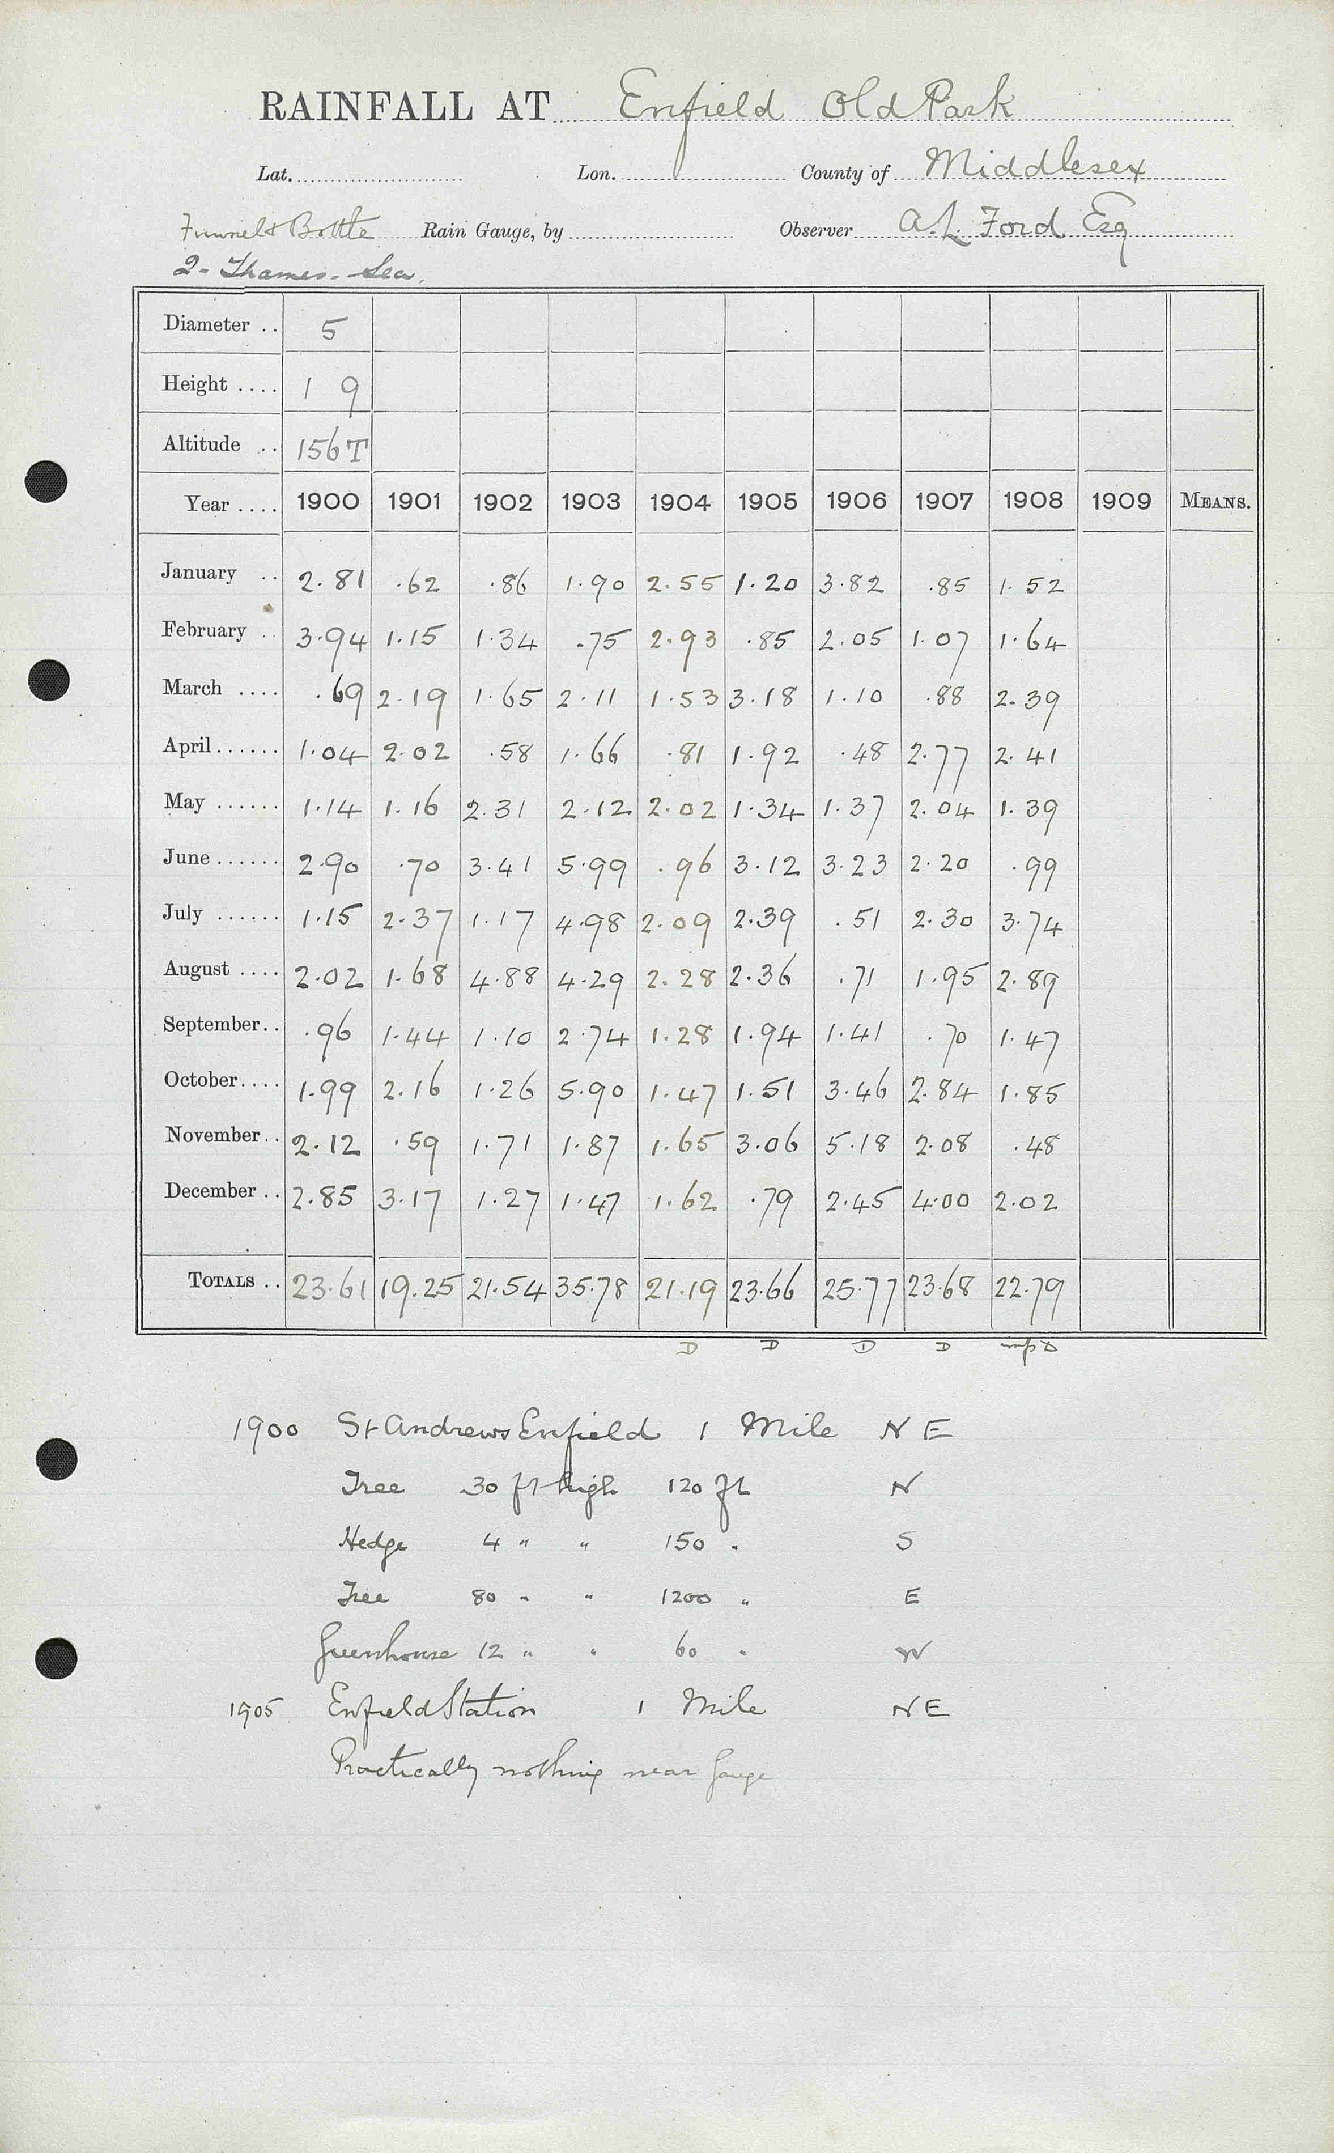 RAINFALL AT Enfield Old Park
Lat. Lon. County of Middlesex
Funnel & Bottle Rain Gauge, by Observer A. L. Ford Esq
2 - Thames - Sea.
Diameter .. 5
Height .... 1 9
Altitude .. 156 T
Year .... 1900 1901 1902 1903 1904 1905 1906 1907 1908 1909 MEANS.
January .. 2.81 .62 .86 1.90 2.55 1.20 3.82 .85 1.52
February .. 3.94 1.15 1.34 .75 2.93 .85 2.05 1.07 1.64
March .... .69 2.19 1.65 2.11 1.53 3.18 1.10 .88 2.39
April ...... 1.04 2.02 .58 1.66 .81 1.92 .48 2.77 2.41
May ...... 1.14 1.16 2.31 2.12 2.02 1.34 1.37 2.04 1.39
June ...... 2.90 .70 3.41 5.99 .96 3.12 3.23 2.20 .99
July ...... 1.15 2.37 1.17 4.98 2.09 2.39 .51 2.30 3.74
August .... 2.02 1.68 4.88 4.29 2.28 2.36 .71 1.95 2.89
September.. .96 1.44 1.10 2.74 1.28 1.94 1.41 .70 1.47
October.... 1.99 2.16 1.26 5.90 1.47 1.51 3.46 2.84 1.85
November.. 2.12 .59 1.71 1.87 1.65 3.06 5.18 2.08 .48
December .. 2.85 3.17 1.27 1.47 1.62 .79 2.45 4.00 2.02
TOTALS .. 23.61 19.25 21.54 35.78 21.19 23.66 25.77 23.68 22.79
D D D D D
1900 St Andrews Enfield 1 Mile N E
Tree 30 ft high 120 ft N
Hedge 4 " " 150 " S
Tree 80 " " 1200 " E
Greenhouse 12 " " 60 " W
1905 Enfield Station 1 Mile N E
Practically nothing near gauge